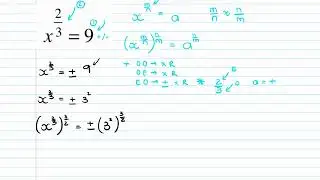 x^(2/3) = 9 +/-
x^(m/n) = a m/n n/m
(x^(m/n))^(n/m) = a^(n/m)
x^(2/3) = ± 9
+ OO → x R
OE → x R
EO → ± x R * 2/3 a = +
x^(2/3) = ± 3²
(x^(2/3))^(3/2) = ± (3²)^(3/2)